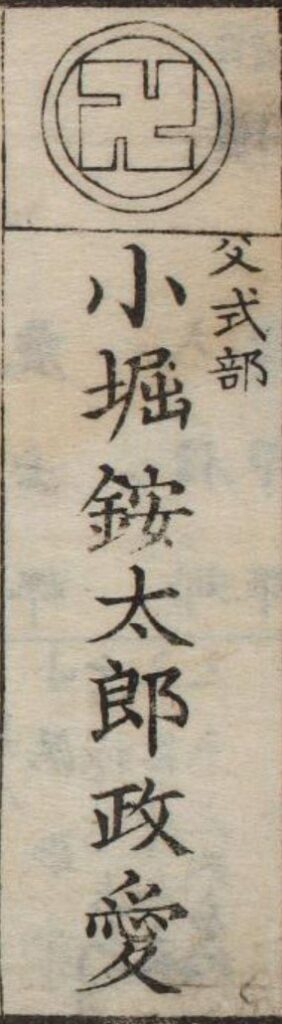 父式部
小堀銨太郎政愛